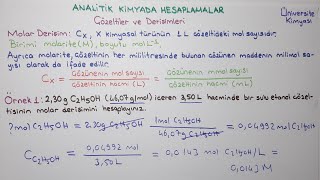 ANALİTİK KİMYADA HESAPLAMALAR
Üniversite
Kimyası
Çözeltiler ve Derişimleri
Molar Derişim: Cx, X kimyasal türünün 1 L çözeltideki mol sayısıdır.
Birimi molarite(M), boyutu mol L⁻¹.
Ayrıca molarite çözeltinin her mililitresinde bulunan çözünen maddenin milimol sa-
yısı olarak da ifade edilir.
Cx = çözünenin mol sayısı / çözeltinin hacmi (L) = çözünenin mmol sayısı / çözeltinin hacmi (mL)
Örnek 1: 2,30 g C₂H₅OH (46,07 g/mol) içeren 3,50 L hacminde bir sulu etanol çöz-
eltisinin molar derişimini hesaplayınız.
? mol C₂H₅OH = 2,30 g C₂H₅OH / 1 × 1 mol C₂H₅OH / 46,07 g C₂H₅OH = 0,04992 mol C₂H₅OH
C C₂H₅OH = 0,04992 mol / 3,50 L = 0,0143 mol C₂H₅OH/L =
0,0143 M